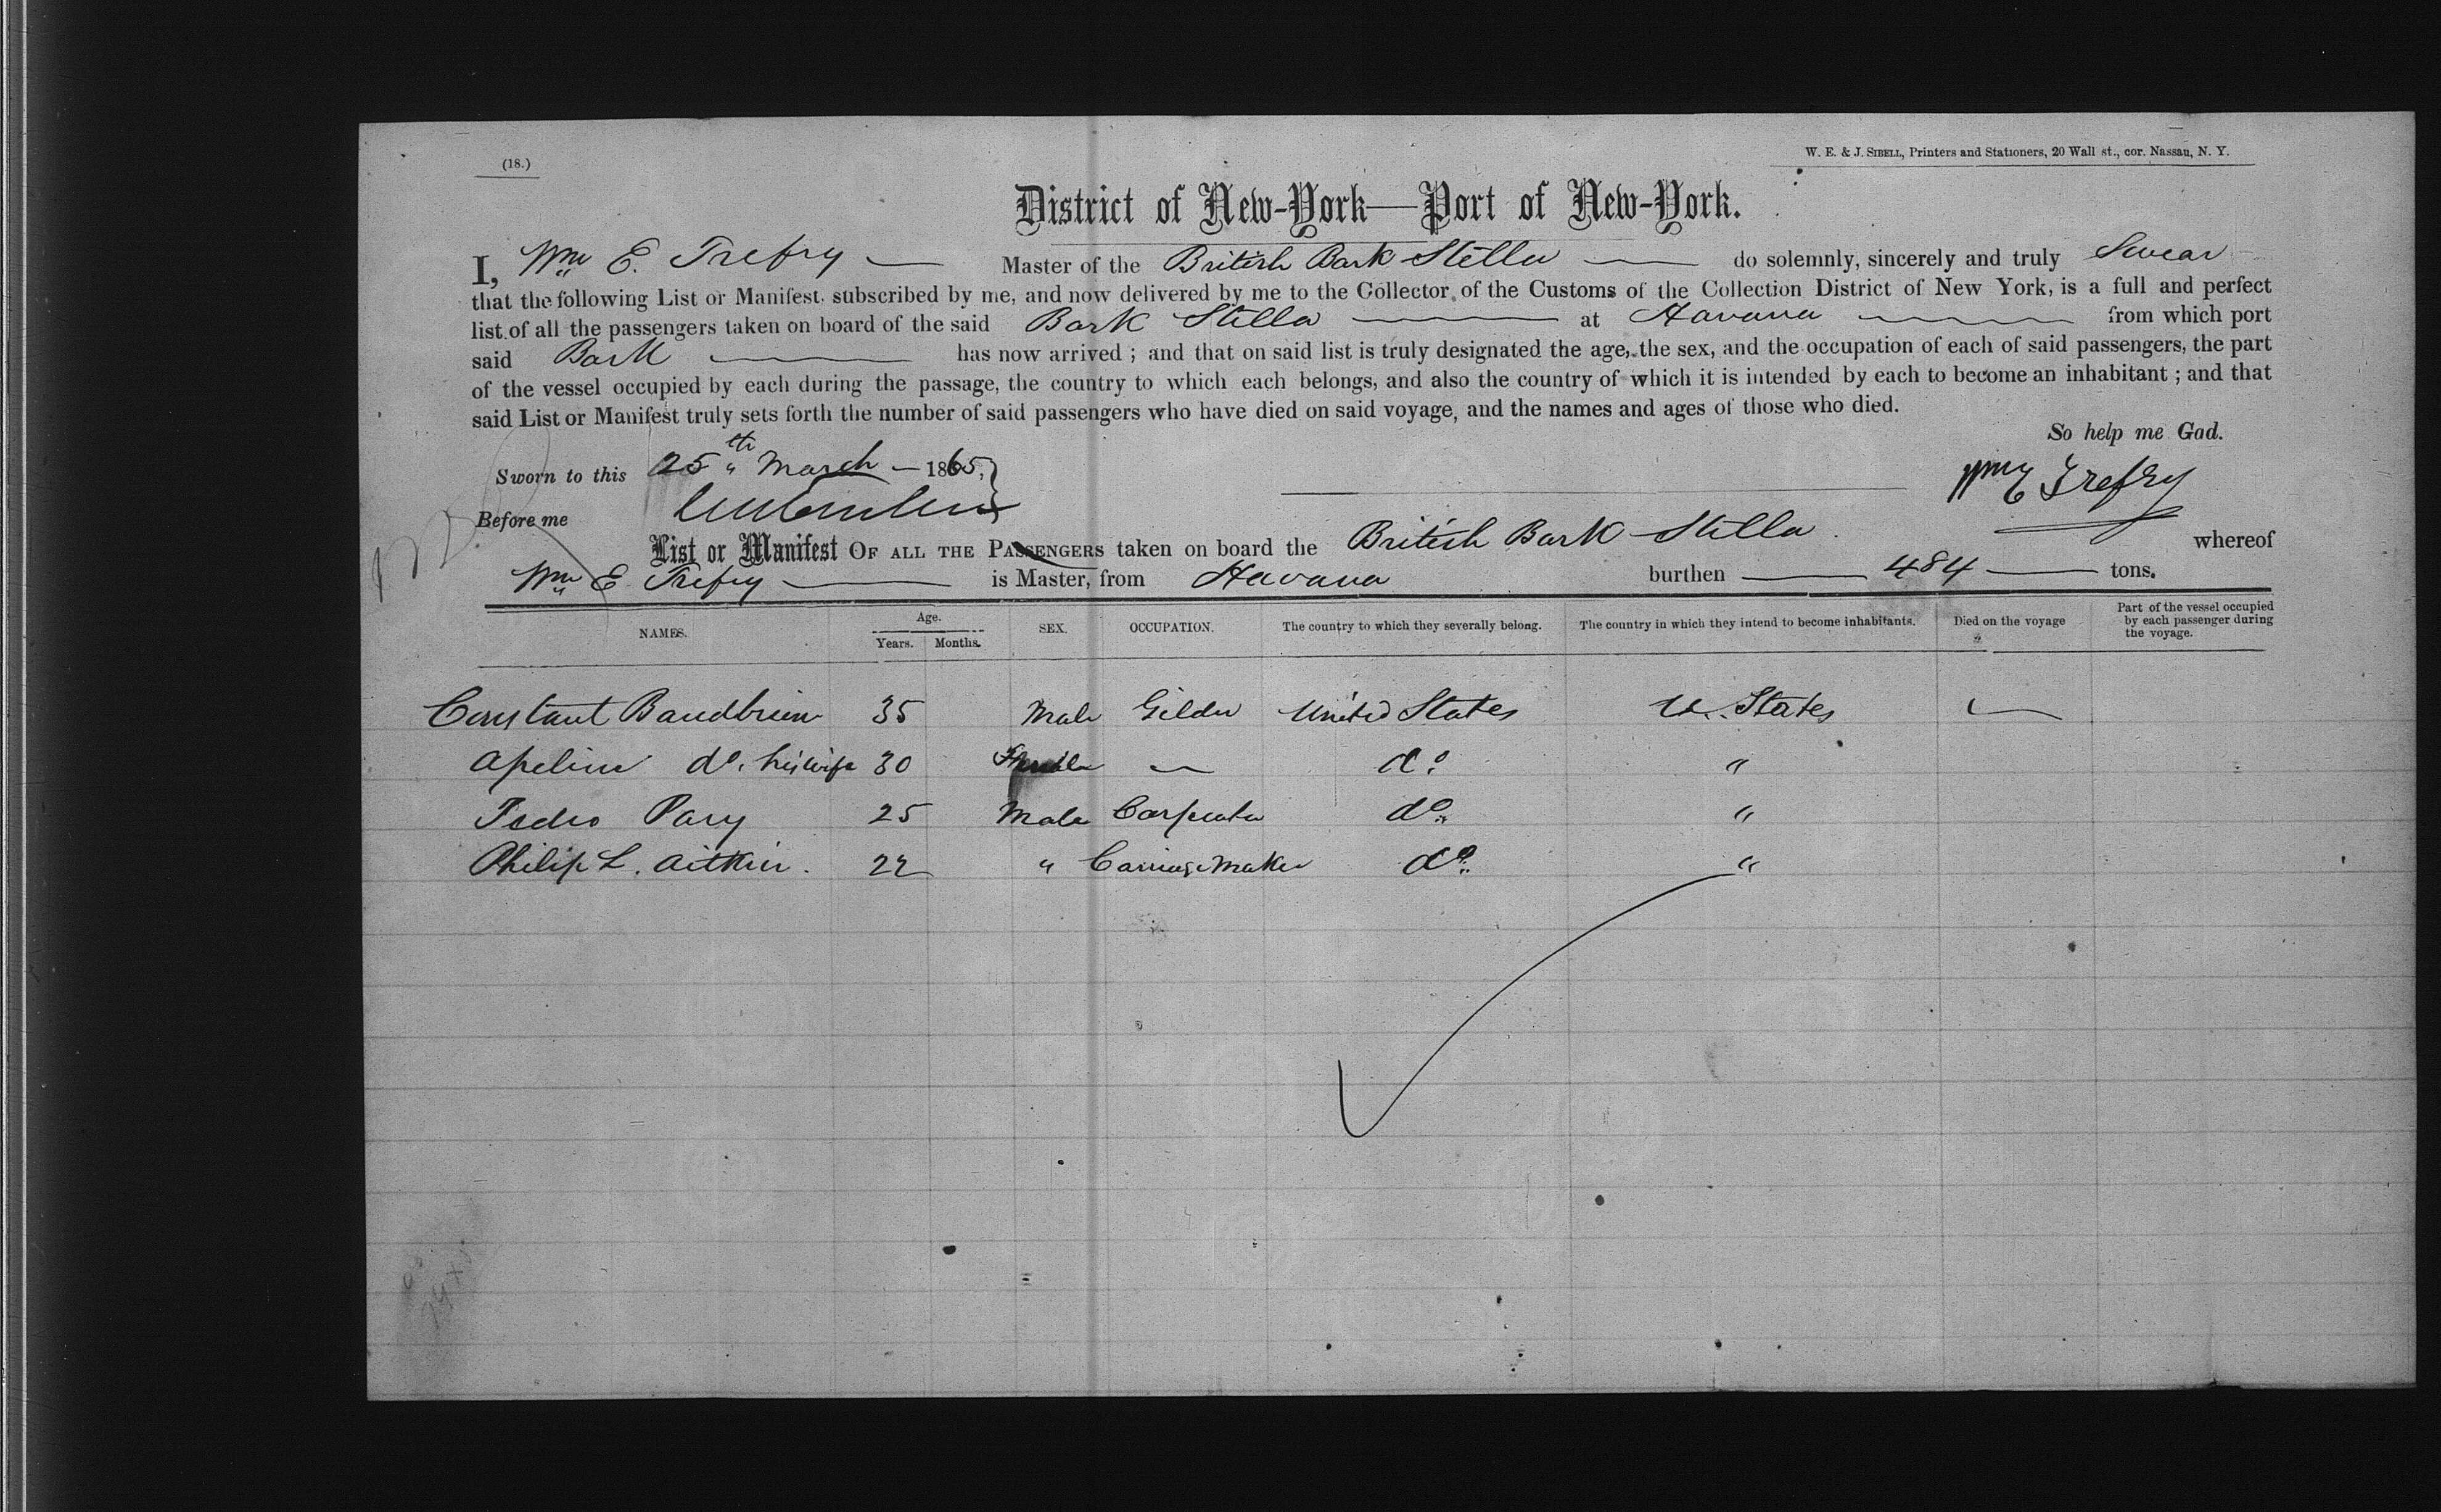 (18.)
W. E. & J. SIBELL, Printers and Stationers, 20 Wall st., cor. Nassau, N. Y.
District of New-York—Port of New-York.
I, Wm E. Trefry — Master of the British Bark Stella — do solemnly, sincerely and truly Swear
that the following List or Manifest, subscribed by me, and now delivered by me to the Collector of the Customs of the Collection District of New York, is a full and perfect
list of all the passengers taken on board of the said Bark Stella — at Havana — from which port
said Bark — has now arrived ; and that on said list is truly designated the age, the sex, and the occupation of each of said passengers, the part
of the vessel occupied by each during the passage, the country to which each belongs, and also the country of which it is intended by each to become an inhabitant ; and that
said List or Manifest truly sets forth the number of said passengers who have died on said voyage, and the names and ages of those who died.
So help me God.
Sworn to this 25th March — 1865,
Wm E Trefry
Before me
List or Manifest OF ALL THE PASSENGERS taken on board the British Bark Stella whereof
Wm E Trefry — is Master, from Havana burthen — 484 — tons.
NAMES. Age. Years. Months. SEX. OCCUPATION. The country to which they severally belong. The country in which they intend to become inhabitants. Died on the voyage Part of the vessel occupied by each passenger during the voyage.
Constant Baudbrien 35 Male Gilder United States U. States —
Apeline do. his wife 30 Female — do "
Pedro Pary 25 Male Carpenter do "
Philip L. Aitkin. 22 " Carriage Maker do "